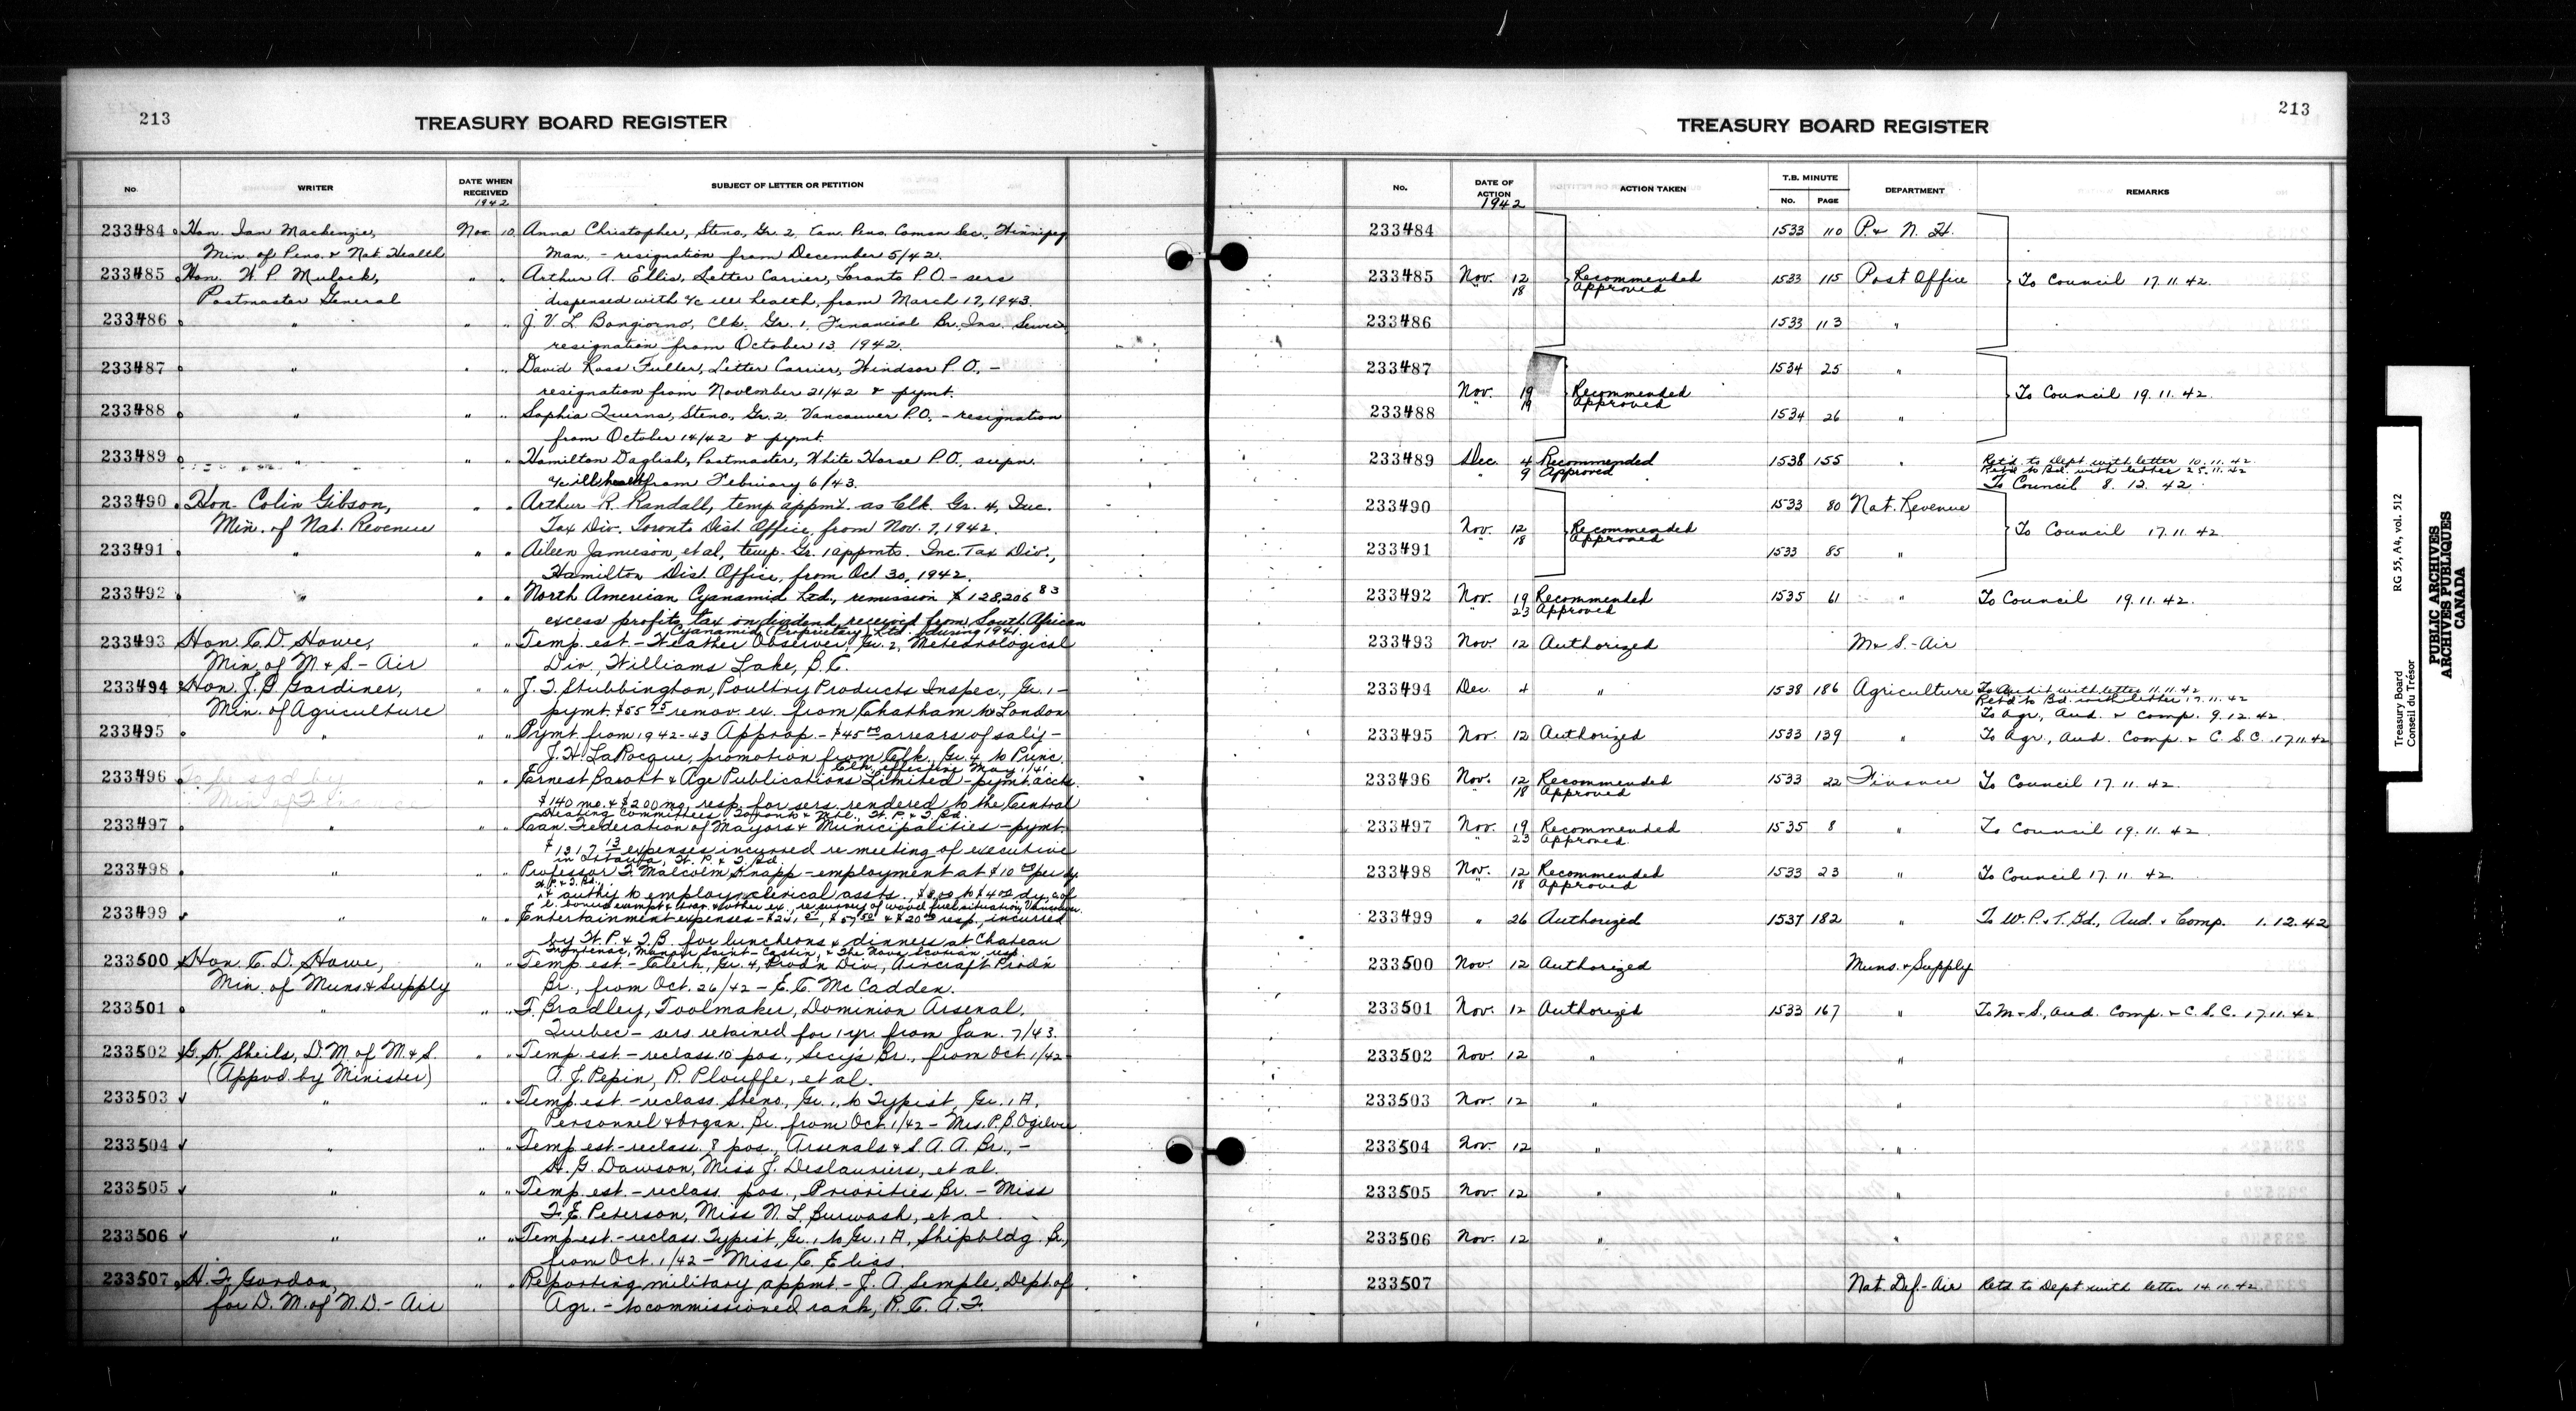 213
TREASURY BOARD REGISTER
No.
WRITER
DATE WHEN RECEIVED
1942
SUBJECT OF LETTER OR PETITION
233484 Hon. Ian Mackenzie, Nov. 10 Anna Christopher, Steno, Gr. 2, Can. Pens. Comsn Sec., Winnipeg
Min. of Pens. & Nat. Health Man. - resignation from December 5/42.
233485 Hon. W. P. Mulock, " " Arthur A. Ellis, Letter Carrier, Toronto P.O. - sers
Postmaster General dispensed with a/c ill health, from March 17, 1943.
233486 " " " J. V. L. Bongiorno, Clk. Gr. 1, Financial Br. Ins. Service
resignation from October 13, 1942.
233487 " " " David Ross Fuller, Letter Carrier, Windsor P.O. -
resignation from November 21/42 & pymt.
233488 " " " Sophia Querns, Steno, Gr. 2, Vancouver P.O. - resignation
from October 14/42 & pymt.
233489 " " " Hamilton Daglish, Postmaster, White Horse P.O. supn.
a/c ill health from February 6/43.
233490 Hon. Colin Gibson, " " Arthur R. Randall, temp appmt. as Clk. Gr. 4, Inc.
Min. of Nat. Revenue Tax Div. Toronto Dist. Office, from Nov. 7, 1942.
233491 " " " Aileen Jamieson, et al, temp. Gr. 1 appmts. Inc. Tax Div.,
Hamilton Dist. Office, from Oct 30, 1942.
233492 " " " North American Cyanamid Ltd., remission $128,206 83
excess profits tax on dividend received from South African
Cyanamid (Proprietary) Ltd. during 1941.
233493 Hon. C. D. Howe, " " Temp. est. - Weather Observer, Gr. 2, Meteorological
Min. of M & S. - Air Div., Williams Lake, B.C.
233494 Hon. J. G. Gardiner, " " J. T. Stubbington, Poultry Products Inspec., Gr. 1 -
Min. of Agriculture pymt. $55 95 remov. ex. from Chatham to London
233495 " " " Pymt. from 1942-43 Approp. - $45 00 arrears of saly -
J. H. LaRocque, promotion from Clk. Gr. 4 to Princ.
Clk. effective May 1/41
233496 To be sgd by " " Ernest Barott & Age Publications Limited - pymt. accts.
Min of Finance $140 mo. & $200 mo. resp. for sers. rendered to the Central
Heating Committees Toronto & Mtl., W. P. & T. Bd.
233497 " " " Can. Federation of Mayors & Municipalities - pymt.
$1317 13 expenses incurred re meeting of executive
in Ottawa, W. P. & T. Bd.
233498 " " " Professor F. Malcolm Knapp - employment at $10 00 per dy.
W. P. & T. Bd.
& authy to employ clerical assts., to $4 00 dy, c of
l. bonus exempt & trav. & other ex., re survey of wood fuel situation, Vancouver
233499 " " " Entertainment expenses - $241, $57 50 & $20 00 resp., incurred
by W. P. & T. B. for luncheons & dinners at Chateau
Frontenac, Manoir Saint-Castin, & The Nova Scotian, resp.
233500 Hon. C. D. Howe, " " Temp. est. - Clerk, Gr. 4, Prod'n Div., Aircraft Prod'n
Min. of Muns. & Supply Br., from Oct. 26/42 - E. C. McCadden.
233501 " " " F. Bradley, Toolmaker, Dominion Arsenal,
Quebec - sers. retained for 1 yr. from Jan. 7/43.
233502 G. K. Sheils, D. M. of M. & S. " " Temp. est. - reclass. 10 pos., Secy's Br., from Oct. 1/42
(Appvd. by Minister) A. J. Pepin, R. Plouffe, et al.
233503 " " " Temp. est. - reclass. Steno, Gr. 1, to Typist, Gr. 1A,
Personnel & Organ. Br. from Oct 1/42 - Mrs. P. B. Ogilvie
233504 " " " Temp est. - reclass. 8 pos., Arsenals & S. A. A. Br., -
H. G. Dawson, Miss J. Deslauriers, et al.
233505 " " " Temp est. - reclass. pos., Priorities Br. - Miss
F. E. Peterson, Miss N. L. Burwash, et al.
233506 " " " Temp est. - reclass Typist, Gr. 1 to Gr. 1A, Shipbldg. Br.,
from Oct. 1/42 - Miss C. Eliss.
233507 H. F. Gordon, " " Reporting military appmt. - J. A. Semple, Dept. of
for D. M. of N.D. - Air Agr. - to commissioned rank, R. C. A. F.
213
TREASURY BOARD REGISTER
No.
DATE OF ACTION
1942
ACTION TAKEN
T.B. MINUTE
No. PAGE
DEPARTMENT
REMARKS
233484 1533 110 P. & N. H.
233485 Nov. 12 Recommended 1533 115 Post Office To Council 17.11.42.
" 18 Approved
233486 1533 113 "
233487 1534 25 "
Nov. 19 Recommended To Council 19.11.42.
" 19 Approved
233488 1534 26 "
233489 Dec. 4 Recommended 1538 155 " Ret'd. to Dept with letter 10.11.42
" 9 Approved Ret'd to Bd. with letter 25.11.42
To Council 8.12.42.
233490 1533 80 Nat. Revenue
Nov. 12 Recommended To Council 17.11.42
" 18 Approved
233491 1533 85 "
233492 Nov. 19 Recommended 1535 61 " To Council 19.11.42.
" 23 Approved
233493 Nov. 12 Authorized M & S. - Air
233494 Dec. 4 " 1538 186 Agriculture To Audit with letter 11.11.42
Ret'd to Bd. with letter 17.11.42
To Agr., Aud. & Comp. 9.12.42.
233495 Nov. 12 Authorized 1533 139 " To Agr., Aud. Comp. & C. S. C. 17.11.42
233496 Nov. 12 Recommended 1533 22 Finance To Council 17.11.42.
" 18 Approved
233497 Nov. 19 Recommended 1535 8 " To Council 19.11.42.
" 23 Approved
233498 Nov. 12 Recommended 1533 23 " To Council 17.11.42.
" 18 Approved
233499 " 26 Authorized 1537 182 " To W. P. & T. Bd., Aud. & Comp. 1.12.42
233500 Nov. 12 Authorized Muns. & Supply
233501 Nov. 12 Authorized 1533 167 " To M. & S., Aud. Comp. & C. S. C. 17.11.42
233502 Nov. 12 " "
233503 Nov. 12 " "
233504 Nov. 12 " "
233505 Nov. 12 " "
233506 Nov. 12 " "
233507 Nat. Def. - Air Retd to Dept with letter 14.11.42
Treasury Board RG 55, A4, vol. 512
Conseil du Trésor
PUBLIC ARCHIVES
ARCHIVES PUBLIQUES
CANADA